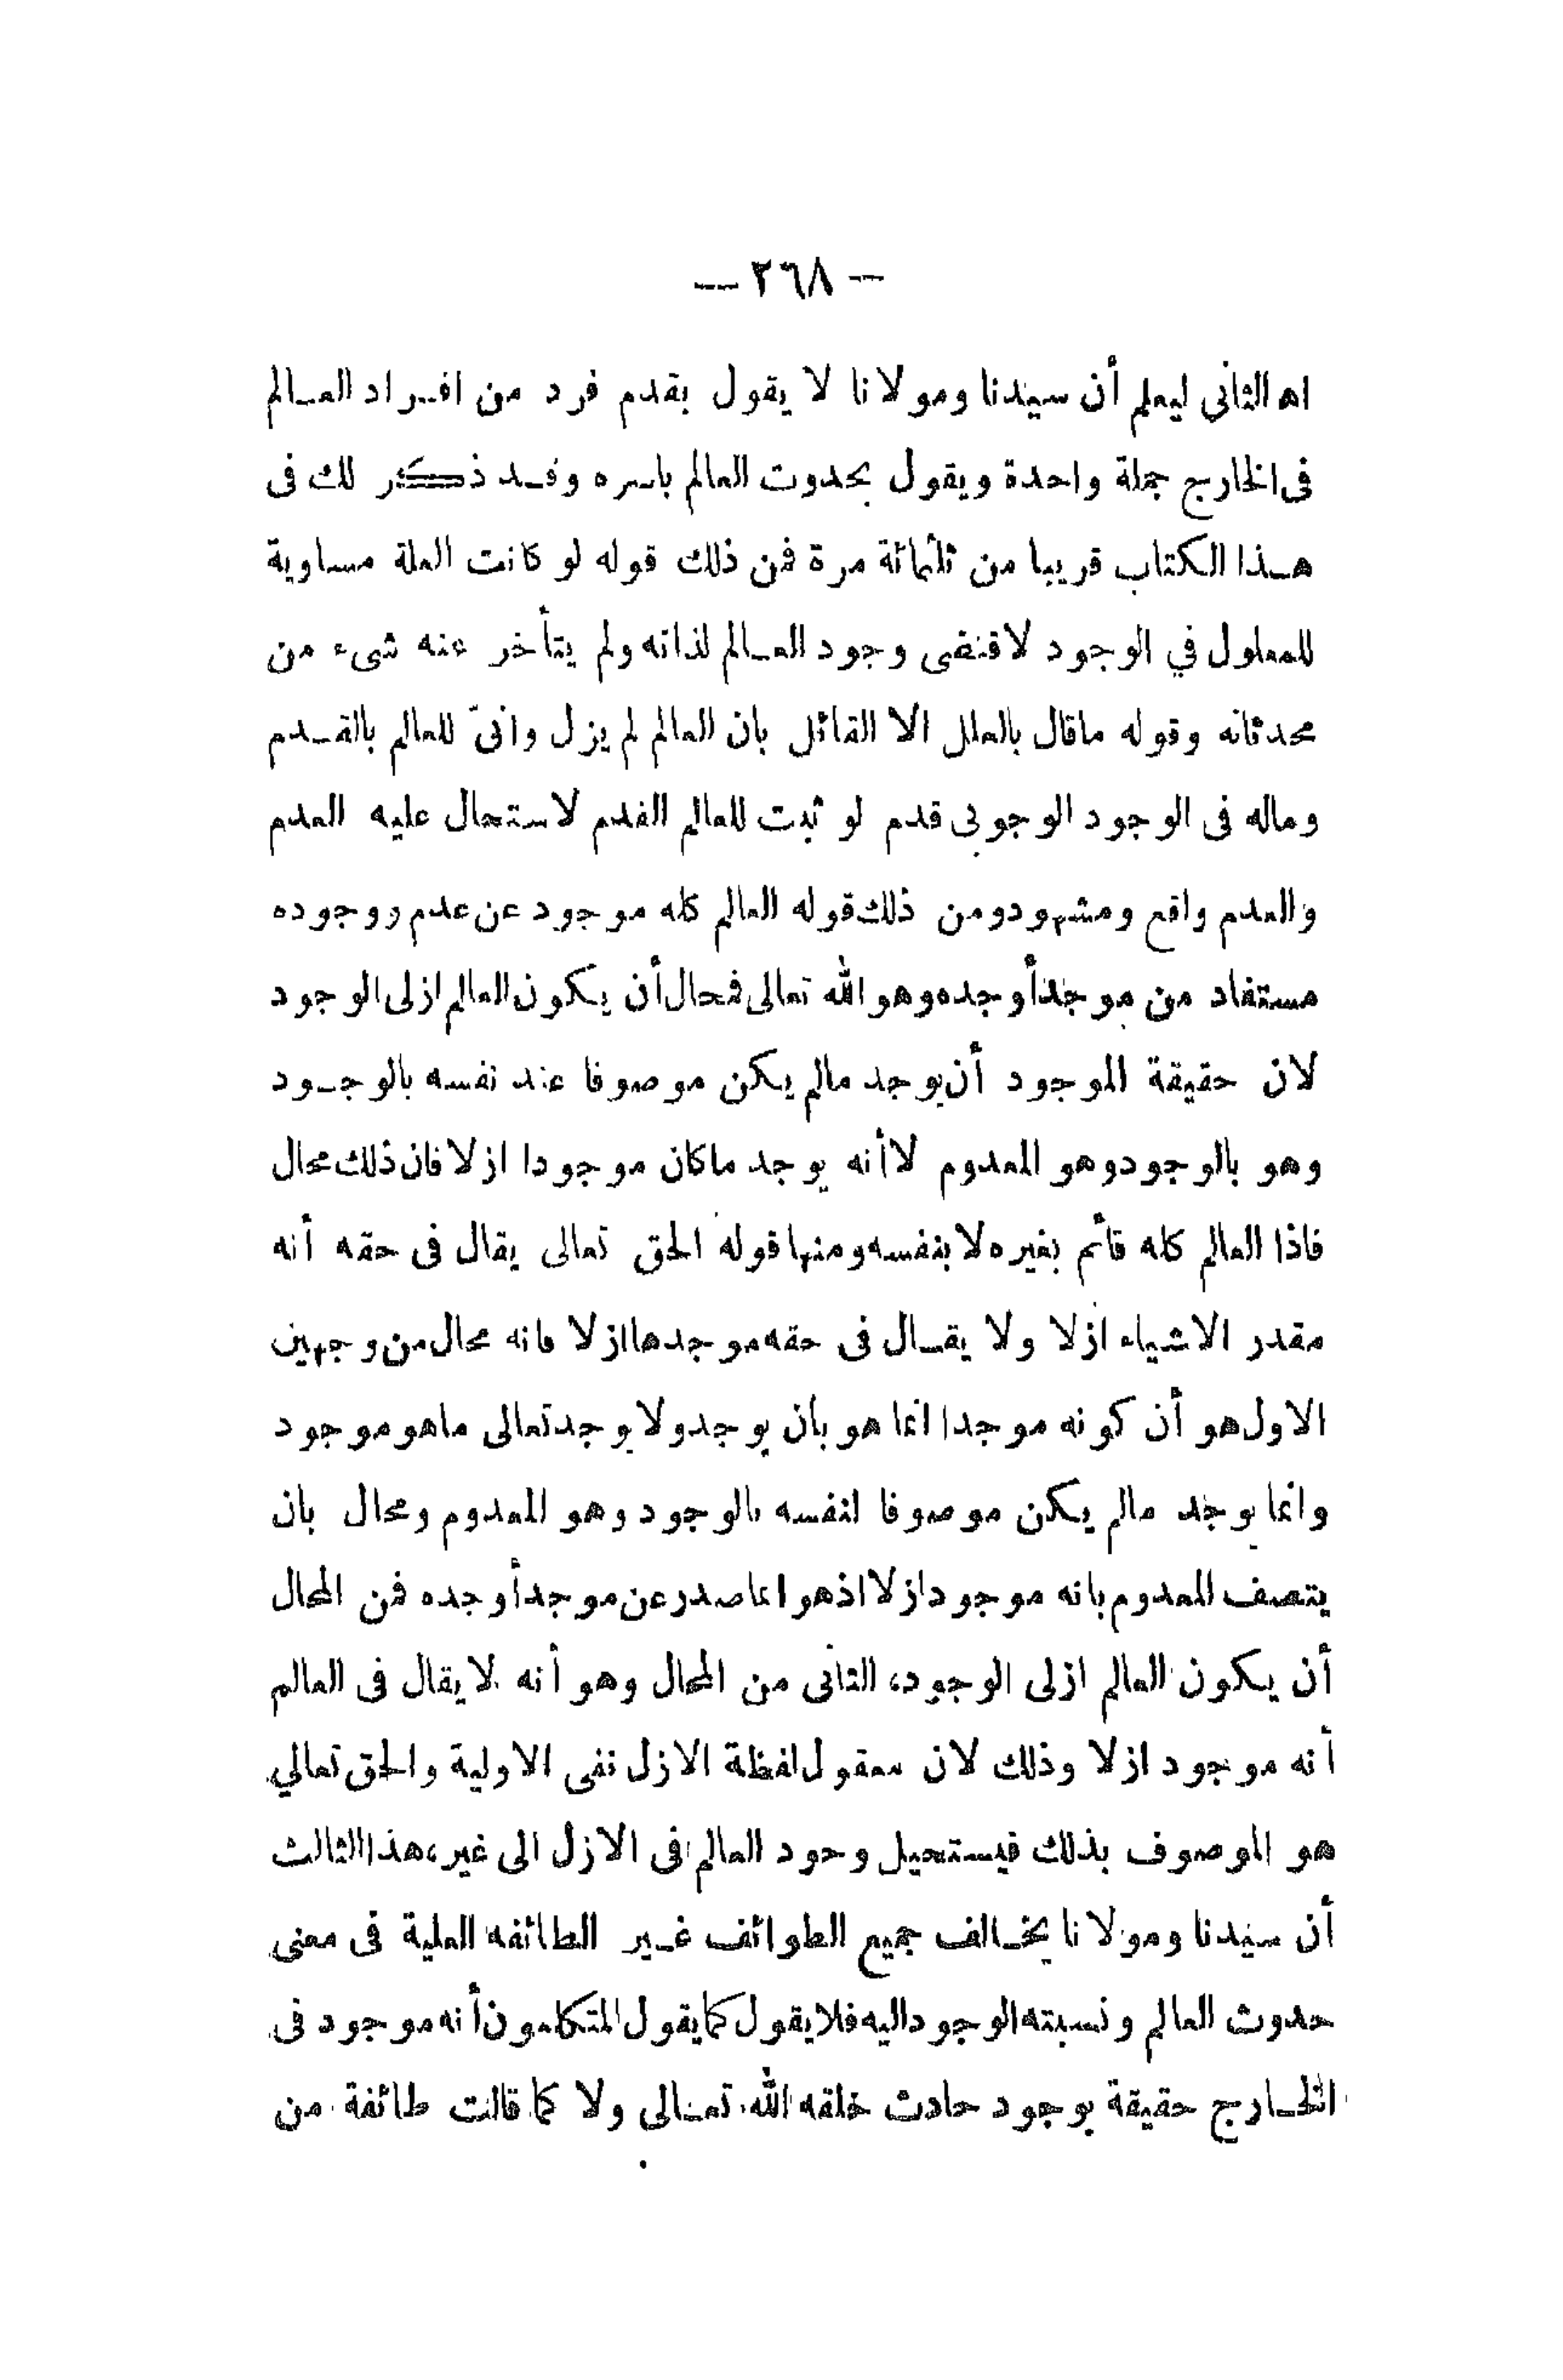 — ٢٦٨ —
اه الثانى ليعلم أن سيدنا ومولانا لا يقول بقدم فرد من افراد العالم
فى الخارج جملة واحدة ويقول بحدوت العالم باسره وقد ذكر لك فى
هذا الكتاب قريبا من ثلثمائة مرة فمن ذلك قوله لو كانت العلة مساوية
للمعلول في الوجود لاقتضى وجود العالم لذاته ولم يتأخر عنه شىء من
محدثاته وقوله ماقال بالعلل الا القائل بان العالم لم يزل وانىّ للعالم بالقدم
وماله فى الوجود الوجوبى قدم لو ثبت للعالم القدم لاستحال عليه العدم
والعدم واقع ومشهود ومن ذلك قوله العالم كله موجود عن عدم ووجوده
مستفاد من موجد أوجده وهو الله تعالى فمحال أن يكون العالم ازلى الوجود
لان حقيقة الموجود أن يوجد مالم يكن موصوفا عند نفسه بالوجود
وهو بالوجود وهو المعدوم لا أنه يوجد ماكان موجودا ازلا فان ذلك محال
فاذا العالم كله قائم بغيره لا بنفسه ومنها قوله الحق تعالى يقال فى حقه أنه
مقدر الاشياء ازلا ولا يقال فى حقه موجدها ازلا فانه محال من وجهين
الاول هو أن كونه موجدا انما هو بان يوجد ولا يوجد تعالى ماهو موجود
وانما يوجد مالم يكن موصوفا لنفسه بالوجود وهو المعدوم ومحال بان
يتصف المعدوم بانه موجود ازلا اذ هو انما صدر عن موجد أوجده فمن المحال
أن يكون العالم ازلى الوجود، الثانى من المحال وهو أنه لا يقال فى العالم
أنه موجود ازلا وذلك لان معقول لفظة الازل نفى الاولية والحق تعالي
هو الموصوف بذلك فيستحيل وجود العالم فى الازل الى غير، هذا الثالث
أن سيدنا ومولانا يخالف جميع الطوائف غير الطائفه العلية فى معنى
حدوث العالم ونسبته الوجود اليه فلا يقول كما يقول المتكلمون أنه موجود فى
الخارج حقيقة بوجود حادث خلقه الله تعالى ولا كما قالت طائفة من